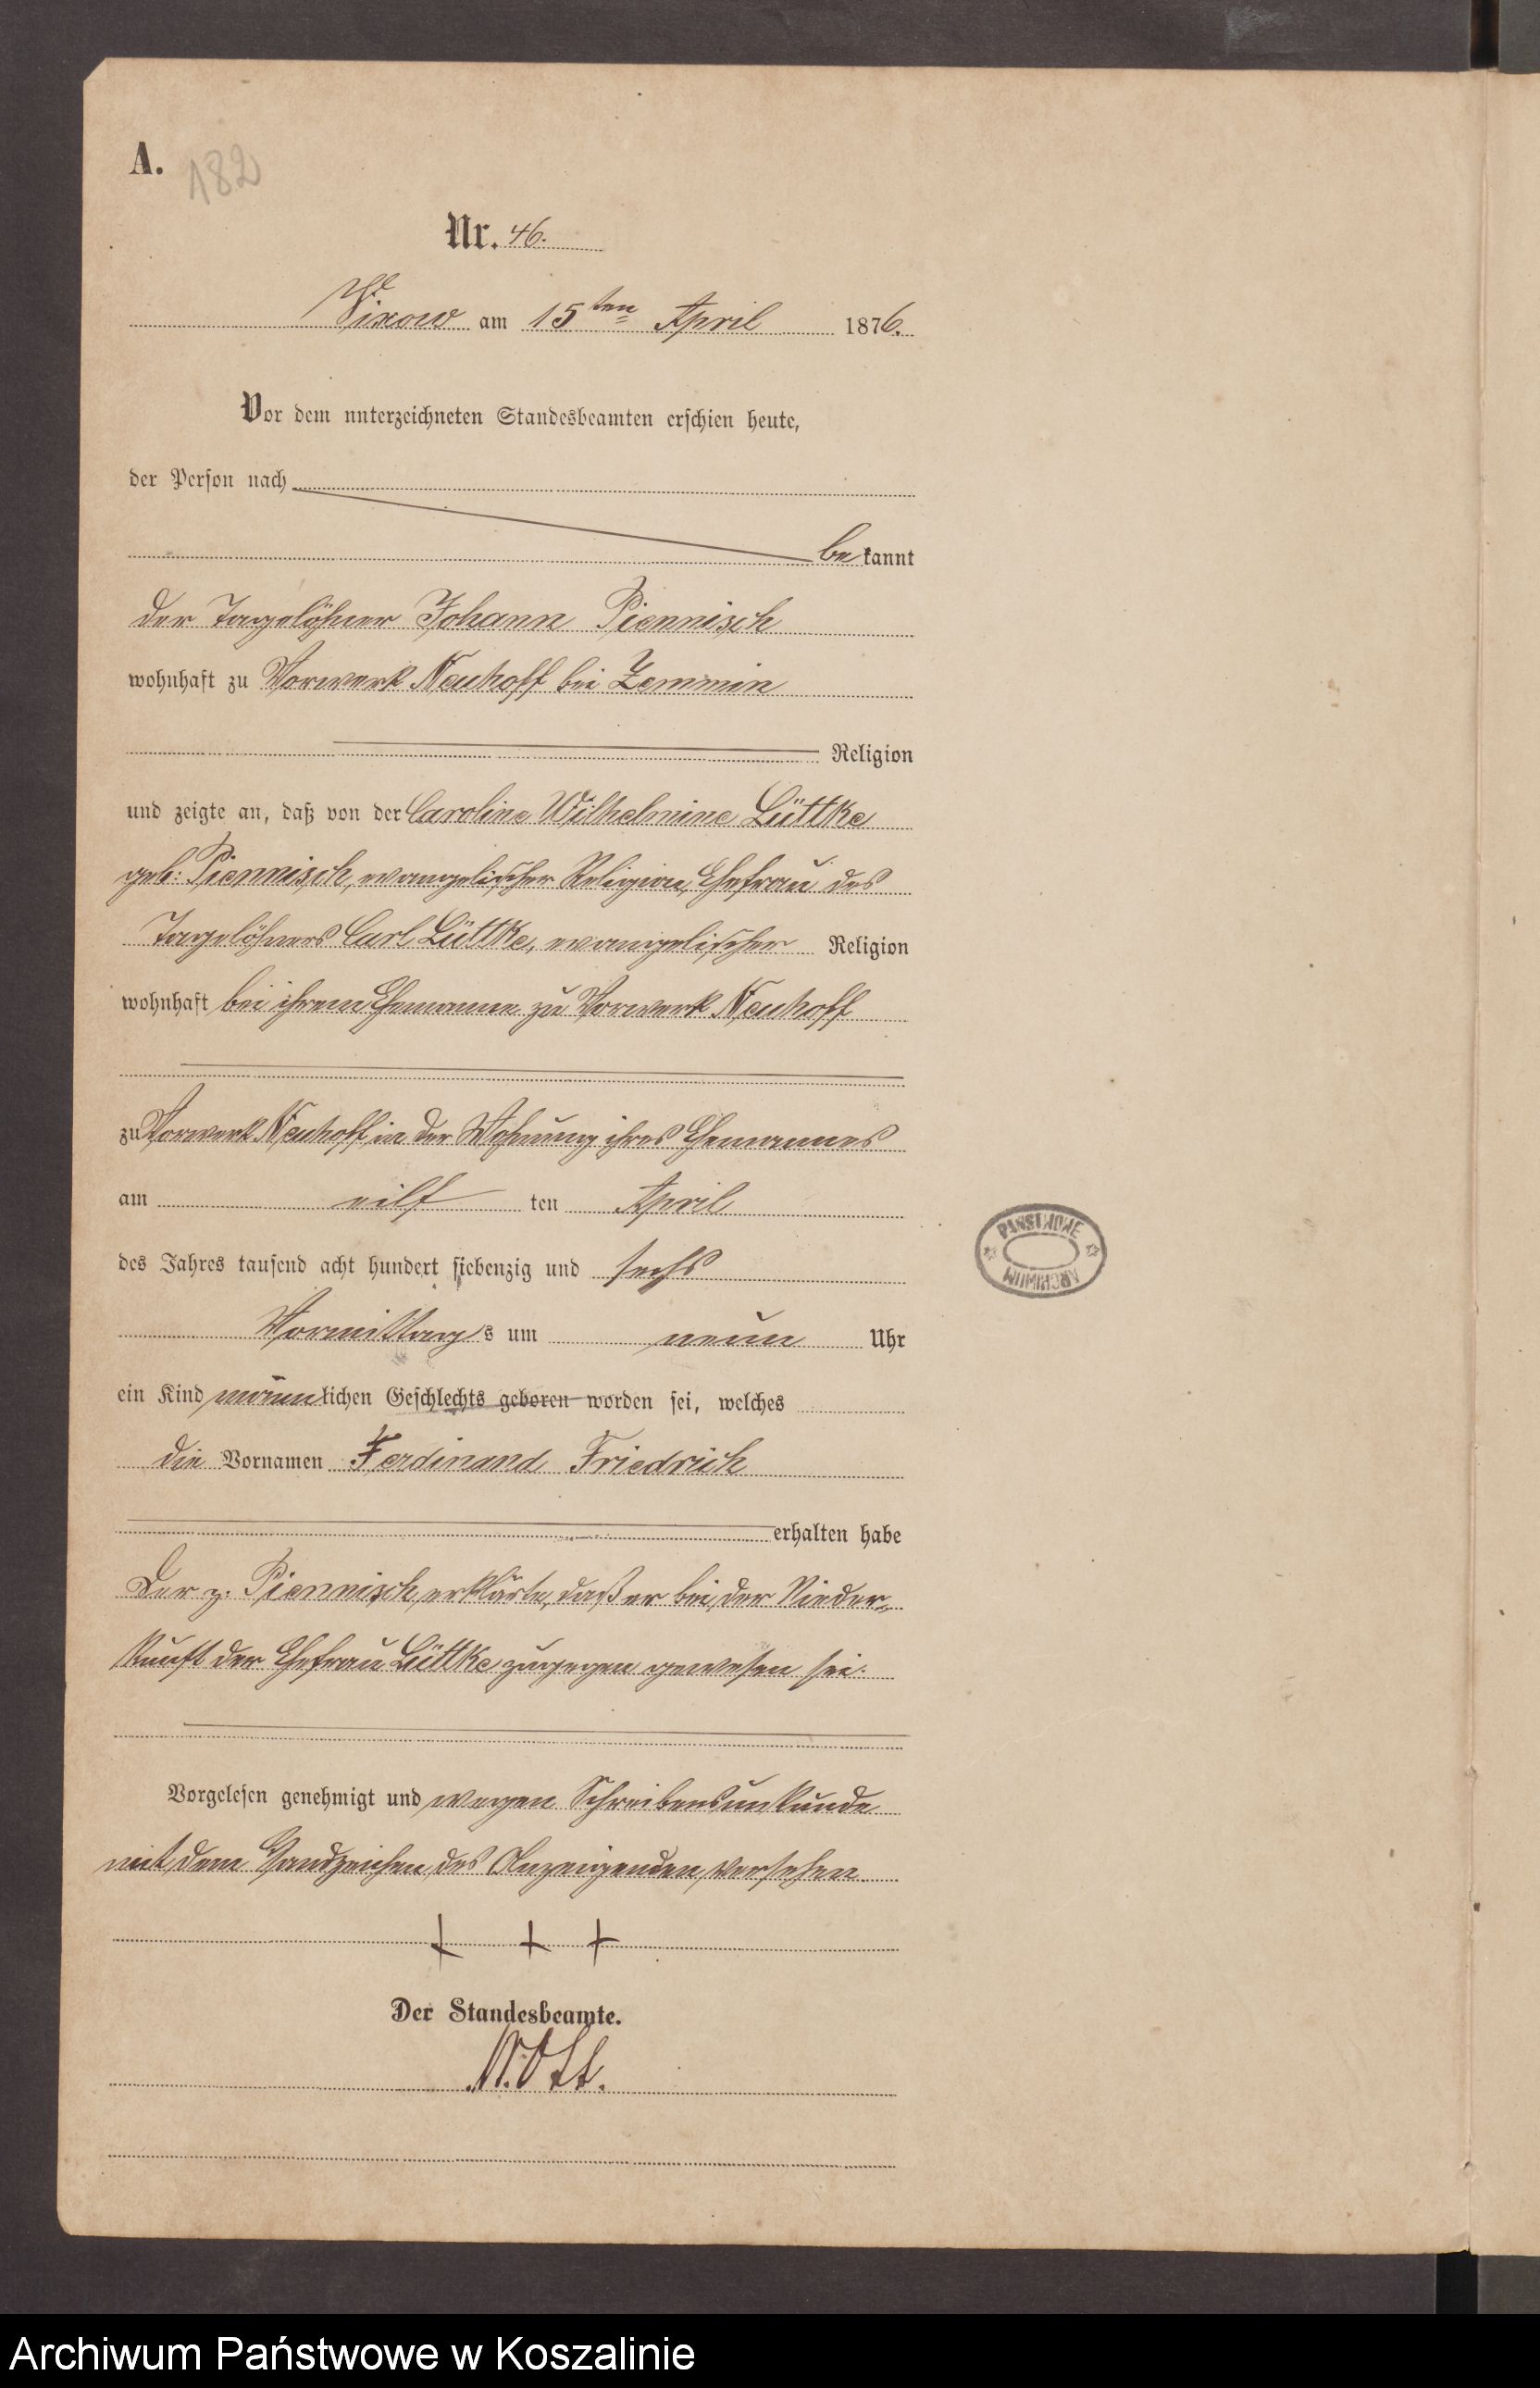 A. 182
Nr. 46.
Vixow am 15ten April 1876.
Vor dem unterzeichneten Standesbeamten erschien heute,
der Person nach
bekannt
der Tagelöhner Johann Piennisch
wohnhaft zu Vorwerk Neuhoff bei Zemmin
Religion
und zeigte an, daß von der Caroline Wilhelmine Lüttke
geb: Piennisch, evangelischer Religion, Ehefrau des
Tagelöhners Carl Lüttke, evangelischer Religion
wohnhaft bei ihrem Ehemanne zu Vorwerk Neuhoff
zu Vorwerk Neuhoff in der Wohnung ihres Ehemannes
am eilf ten April
des Jahres tausend acht hundert siebenzig und sechs
Vormittags um neun Uhr
ein Kind männlichen Geschlechts geboren worden sei, welches
die Vornamen Ferdinand Friedrich
erhalten habe
Der p. Piennisch erklärte, daß er bei der Nieder-
kunft der Ehefrau Lüttke zugegen gewesen sei.
Vorgelesen genehmigt und wegen Schreibensunkunde
mit dem Handzeichen des Anzeigenden versehen
+ + +
Der Standesbeamte.
PAŃSTWOWE
ARCHIWUM
Archiwum Państwowe w Koszalinie